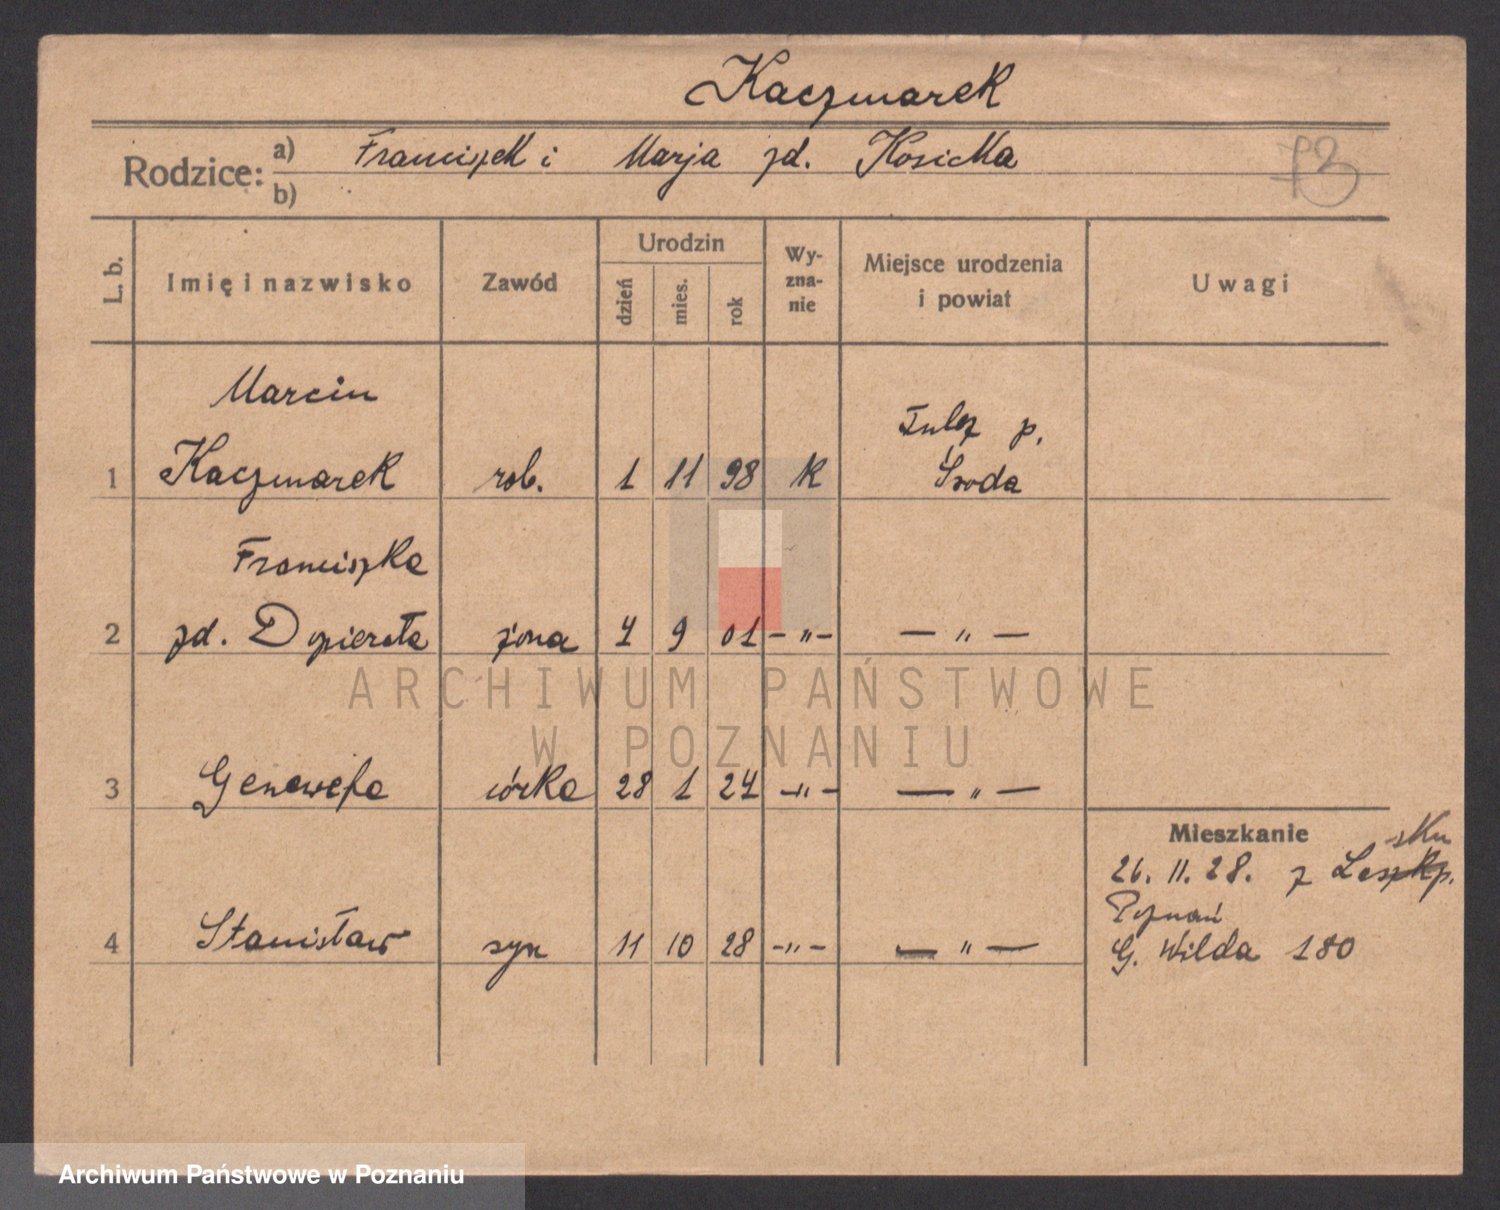 Kaczmarek
Rodzice: a) Franciszek i Marja zd. Kosicka
b)
73
L. b. Imię i nazwisko Zawód Urodzin dzień mies. rok Wy-zna-nie Miejsce urodzenia i powiat Uwagi
Marcin
1 Kaczmarek rob. 1 11 98 k Tulcz p. Środa
Franciszka
2 zd. Dopierała żona 7 9 01 -"- - " -
3 Genowefa córka 28 1 24 -"- - " -
4 Stanisław syn 11 10 28 -"- - " -
Mieszkanie
26. 11. 28. z
Poznań
G. Wilda 180
ARCHIWUM PAŃSTWOWE
W POZNANIU
Archiwum Państwowe w Poznaniu